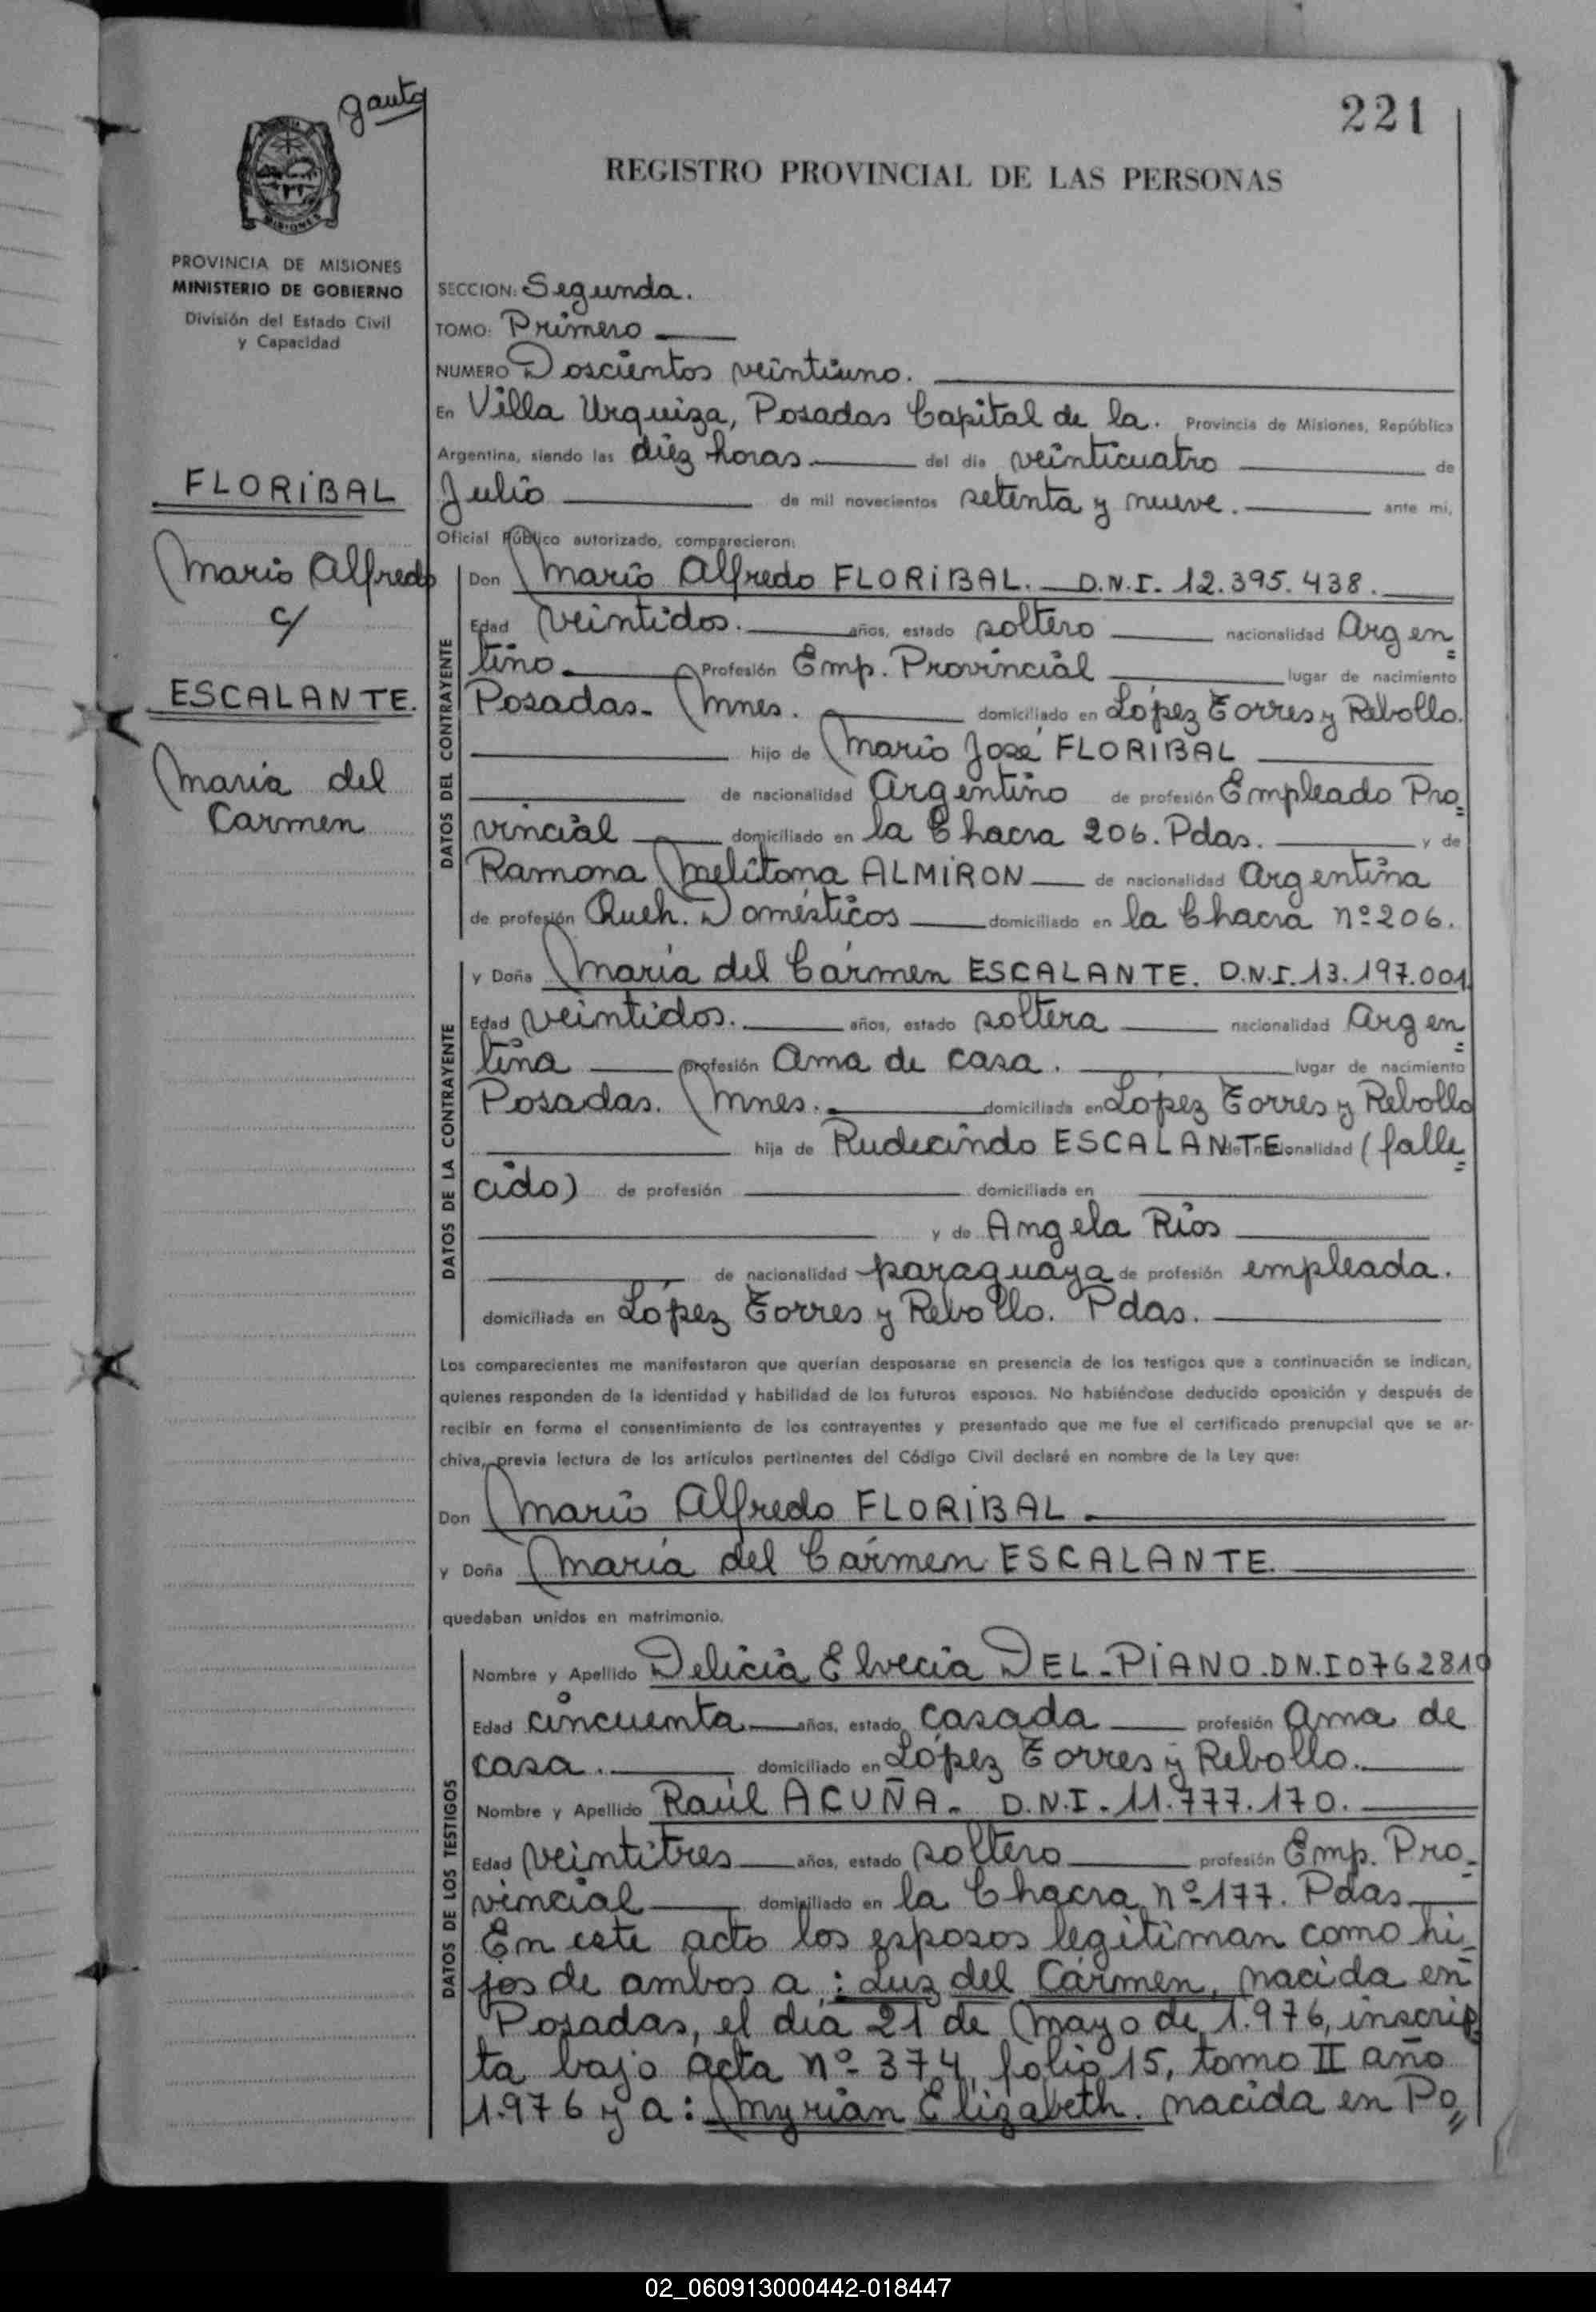 gauto
221
REGISTRO PROVINCIAL DE LAS PERSONAS
MISIONES
PROVINCIA DE MISIONES
MINISTERIO DE GOBIERNO
División del Estado Civil
y Capacidad
FLORIBAL
Mario Alfredo
c/
ESCALANTE.
María del
Carmen
SECCION: Segunda.
TOMO: Primero
NUMERO Doscientos veintiuno.
En Villa Urquiza, Posadas Capital de la. Provincia de Misiones, República
Argentina, siendo las diéz horas del día veinticuatro de
Julio de mil novecientos setenta y nueve. ante mi,
Oficial Público autorizado, comparecieron:
DATOS DEL CONTRAYENTE
Don Mario Alfredo FLORIBAL. D.N.I. 12.395.438.
Edad veintidos. años, estado soltero nacionalidad Argen=
tino. Profesión Emp. Provincial lugar de nacimiento
Posadas- Mnes. domiciliado en López Torres y Rebollo.
hijo de Mario José FLORIBAL
de nacionalidad Argentino de profesión Empleado Pro=
vincial domiciliado en la Chacra 206. Pdas. y de
Ramona Melitona ALMIRON de nacionalidad Argentina
de profesión Queh. Domésticos domiciliado en la Chacra nº 206.
DATOS DE LA CONTRAYENTE
y Doña María del Cármen ESCALANTE. D.N.I. 13.197.001.
Edad veintidos. años, estado soltera nacionalidad Argen=
tina profesión Ama de casa. lugar de nacimiento
Posadas. Mnes. domiciliada en López Torres y Rebollo
hija de Rudecindo ESCALANTE de nacionalidad (falle=
cido) de profesión domiciliada en
y de Angela Ríos
de nacionalidad paraguaya de profesión empleada.
domiciliada en López Torres y Rebollo. Pdas.
Los comparecientes me manifestaron que querían desposarse en presencia de los testigos que a continuación se indican,
quienes responden de la identidad y habilidad de los futuros esposos. No habiéndose deducido oposición y después de
recibir en forma el consentimiento de los contrayentes y presentado que me fue el certificado prenupcial que se ar-
chiva, previa lectura de los artículos pertinentes del Código Civil declaré en nombre de la Ley que:
Don Mario Alfredo FLORIBAL
y Doña María del Cármen ESCALANTE.
quedaban unidos en matrimonio.
DATOS DE LOS TESTIGOS
Nombre y Apellido Delicia Elvecia DEL-PIANO. D.N.I 0762810
Edad cincuenta años, estado casada profesión Ama de
casa. domiciliado en López Torres y Rebollo.
Nombre y Apellido Raúl ACUÑA. D.N.I. 11.777.170.
Edad veintitres años, estado soltero profesión Emp. Pro=
vincial domiciliado en la Chacra nº 177. Pdas
En este acto los esposos legitiman como hi=
jos de ambos a: Luz del Cármen, nacida en
Posadas, el día 21 de Mayo de 1.976, inscrip
ta bajo acta nº 374, folio 15, tomo II año
1.976 y a: Myrian Elizabeth. nacida en Po=
02_060913000442-018447